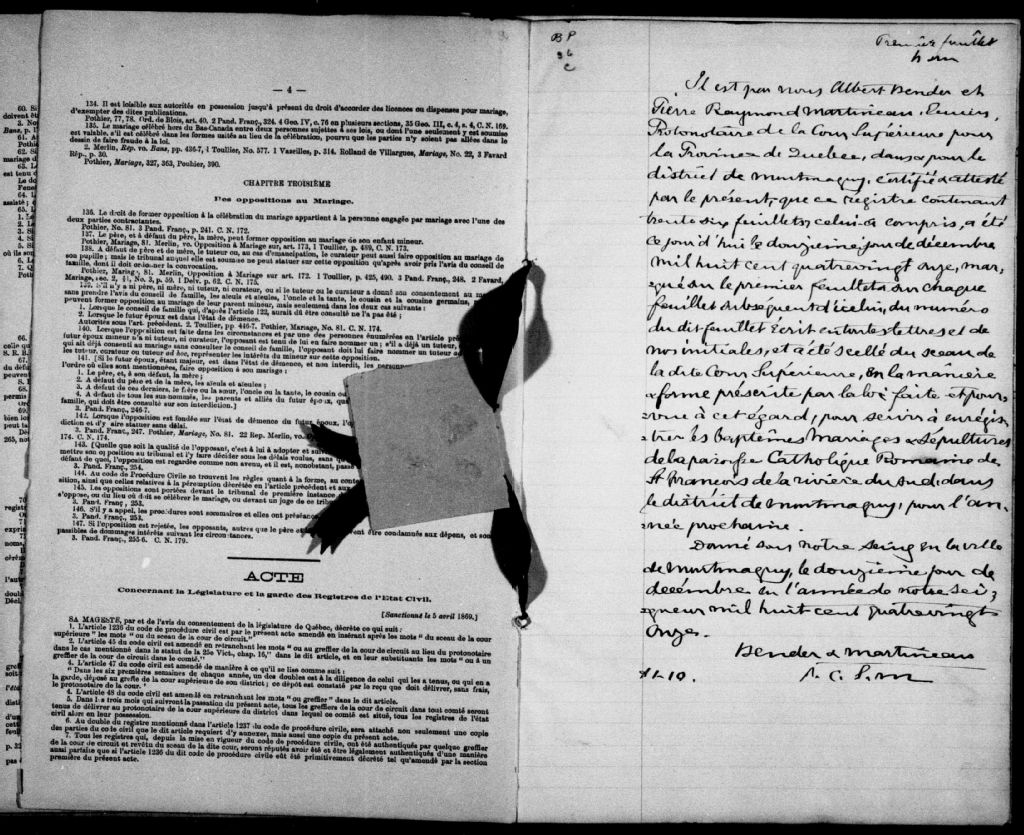 — 4 —
134. Il est loisible aux autorités en possession jusqu'à présent du droit d'accorder des licences ou dispenses pour mariage,
d'exempter des dites publications.
Pothier, 77, 78. Ord. de Blois, art. 40. 2 Pand. Franç., 324. 4 Geo. IV, c. 76 en plusieurs sections, 35 Geo. III, c. 4, s. 4, C. N. 169.
135. Le mariage célébré hors du Bas-Canada entre deux personnes sujettes à ses lois, ou dont l'une seulement y est soumise
est valable, s'il est célébré dans les formes usitées au lieu de la célébration, pourvu que les parties n'y soient pas allées dans le
dessin de faire fraude à la loi.
2. Merlin, Rep. vo. Bans, pp. 436-7, 1 Toullier, No. 577. 1 Vazeilles, p. 314. Rolland de Villargues, Mariage, No. 22, 3 Favard
Rép., p. 30.
Pothier, Mariage, 327, 363, Pouhier, 390.
CHAPITRE TROISIÈME
Des oppositions au Mariage.
136. Le droit de former opposition à la célébration du mariage appartient à la personne engagée par mariage avec l'une des
deux parties contractantes.
Pothier, No. 81. 3 Pand. Franç., p. 241. C. N. 172.
137. Le père, et à défaut du père, la mère, peut former opposition au mariage de son enfant mineur.
Pothier, Mariage, 81. Merlin, vo. Opposition à Mariage sur, art. 173, 1 Toullier, p. 489, C. N. 173.
138. A défaut de père et de mère, le tuteur ou, au cas d'émancipation, le curateur peut aussi faire opposition au mariage de
son pupille; mais le tribunal auquel elle est soumise ne peut statuer sur cette opposition qu'après avoir pris l'avis du conseil de
famille, dont il doit ordonner la convocation.
Pothier, Mariag, 81. Merlin, Opposition à Mariage sur art. 172. 1 Toullier, p. 425, 490. 3 Pand. Franç., 248. 2 Favard,
Mariage, sec. 2, § 1, No. 3, p. 59. 1 Delv. p. 62. C. N. 175.
139. S'il n'y a ni père, ni mère, ni tuteur, ni curateur, ou si le tuteur ou le curateur a donné son consentement au
sans prendre l'avis du conseil de famille, les aïeuls et aïeules, l'oncle et la tante, le cousin et la cousine germains,
peuvent former opposition au mariage de leur parent mineur, mais seulement dans les deux cas suivants:
1. Lorsque le conseil de famille qui, d'après l'article 122, aurait dû être consulté ne l'a pas été;
2. Lorsque le futur époux est dans l'état de démence.
Autorités sous l'art. précédent. 2. Toullier, pp. 446-7. Pothier, Mariage, No. 81. C. N. 174.
140. Lorsque l'opposition est faite dans les circonstances et par une des personnes énumérées en l'article
futur époux mineur n'a ni tuteur, ni curateur, l'opposant est tenu de lui en faire nommer un; s'il a déjà un tuteur,
qui ait déjà consenti au mariage sans consulter le conseil de famille, l'opposant doit lui faire nommer un tuteur
les tuteur, curateur ou tuteur ad hoc, représenter les intérêts du mineur sur cette opposition.
141. [Si le futur époux, étant majeur, est dans l'état de démence, et non interdit, les
l'ordre où elles sont mentionnées, faire opposition à son mariage:
1. Le père, et, à son défaut, la mère;
2. A défaut du père et de la mère, les aïeuls et aïeules;
3. A défaut de ces derniers, le frère ou la sœur, l'oncle ou la tante, le cousin
4. A défaut de tous les sus-nommés, les parents et alliés du futur époux,
famille, qui doit être consulté sur son interdiction.]
3. Pand. Franç., 246-7.
142. Lorsque l'opposition est fondée sur l'état de démence du futur
diction et d'y aire statuer sans délai.
3. Pand. Franç., 247. Pothier, Mariage, No. 81. 22 Rep. Merlin, vo.
174. C. N. 174.
143. [Quelle que soit la qualité de l'opposant, c'est à lui à adopter et
mettre son opposition au tribunal et l'y faire décider sous les délais voulus, sans
défaut de quoi, l'opposition est regardée comme non avenue, et il est, nonobstant,
3. Pand. Franç., 254.
144. Au code de Procédure Civile se trouvent les règles quant à la forme, au
sition, ainsi que celles relatives à la péremption décrétée en l'article précédent et
145. Les oppositions sont portées devant le tribunal de première instance
s'oppose, ou du lieu où doit se célébrer le mariage, ou devant un juge de ce
2. Pand. Franç., 253.
146. S'il y a appel, les procédures sont sommaires et elles ont préséance.
3. Pand. Franç., 253.
147. Si l'opposition est rejetée, les opposants, autres que le père et
être condamnés aux dépens, et sont
passibles de dommages intérêts suivant les circonstances.
3. Pand. Franç., 255-6. C. N. 179.
ACTE
Concernant la Législature et la garde des Registres de l'Etat Civil.
[Sanctionné le 5 avril 1869.]
SA MAGESTÉ, par et de l'avis du consentement de la législature de Québec, décrète ce qui suit:
1. L'article 1236 du code de procédure civile est par le présent acte amendé en insérant après les mots "du sceau de la cour
supérieure" les mots "ou du sceau de la cour de circuit."
2. L'article 45 du code civil est amendé en retranchant les mots "ou au greffier de la cour de circuit au lieu du protonotaire
dans le cas mentionné dans le statut de la 25e Vict., chap. 16," dans le dit article, et en leur substituants les mots "ou à un
greffier de la cour de circuit dans le comté."
4. L'article 47 du code civil est amendé de manière à ce qu'il se lise comme suit:
"Dans les six premières semaines de chaque année, un des doubles est à la diligence de celui qui les a tenus, ou qui en a
la garde, déposé au greffe de la cour supérieure de son district; ce dépôt est constaté par le reçu que doit délivrer, sans frais,
le protonotaire de la cour."
4. L'article 48 du code civil est amendé en retranchant les mots "ou greffier" dans le dit article.
5. Dans les trois mois qui suivront la passation du présent acte, tous les greffiers de la cour de circuit dans tout comté seront
tenus de délivrer au protonotaire de la cour supérieure du district dans lequel ce comté est situé, tous les registres de l'état
civil alors en leur possession.
6. Au double du registre mentionné dans l'article 1237 du code de procédure civile, sera attaché non seulement une copie
des parties du code civil que le dit article requiert d'y annexer, mais aussi une copie du présent acte.
7. Tous les registres qui, depuis la mise en vigueur du code de procédure civile, ont été authentiqués par quelque greffier
de la cour de circuit et revêtu du sceau de la dite cour, seront réputés avoir été et être légalement authentiqués d'une manière
aussi parfaite que si l'article 1236 du dit code de procédure civile eût été primitivement décrété tel qu'amendé par la section
première du présent acte.
Premier feuillet
Il est par nous Albert Bender et
Pierre Raymond Martineau, Ecuiers,
Protonotaire de la Cour Supérieure pour
la Province de Quebec, dans & pour le
district de Montmagny, certifié & attesté
par le présent, que ce registre contenant
trente six feuillets, celui-ci compris, a été
ce jour d'hui le douzième jour de décembre
mil huit cent quatrevingt onze, mar,
qué sur le premier feuillet & sur chaque
feuillet subséquent d'icelui, du numéro
du dit feuillet écrit en toutes lettres et de
nos initiales, et a été scellé du sceau de
la dite Cour Supérieure, en la manière
& forme prescrite par la loi faite et pour,
vue à cet égard, pour servir à enrégis
trer les Baptêmes Mariages & Sépultures
de la paroisse Catholique Romaine de
St François de la rivière du Sud, dans
le district de Montmagny, pour l'an,
née prochaine.
Donné sous notre seing en la ville
de Montmagny, le douzième jour de
décembre en l'année de notre Sei,
gneur mil huit cent quatrevingt
onze.
Bender & Martineau
P. C. S. M